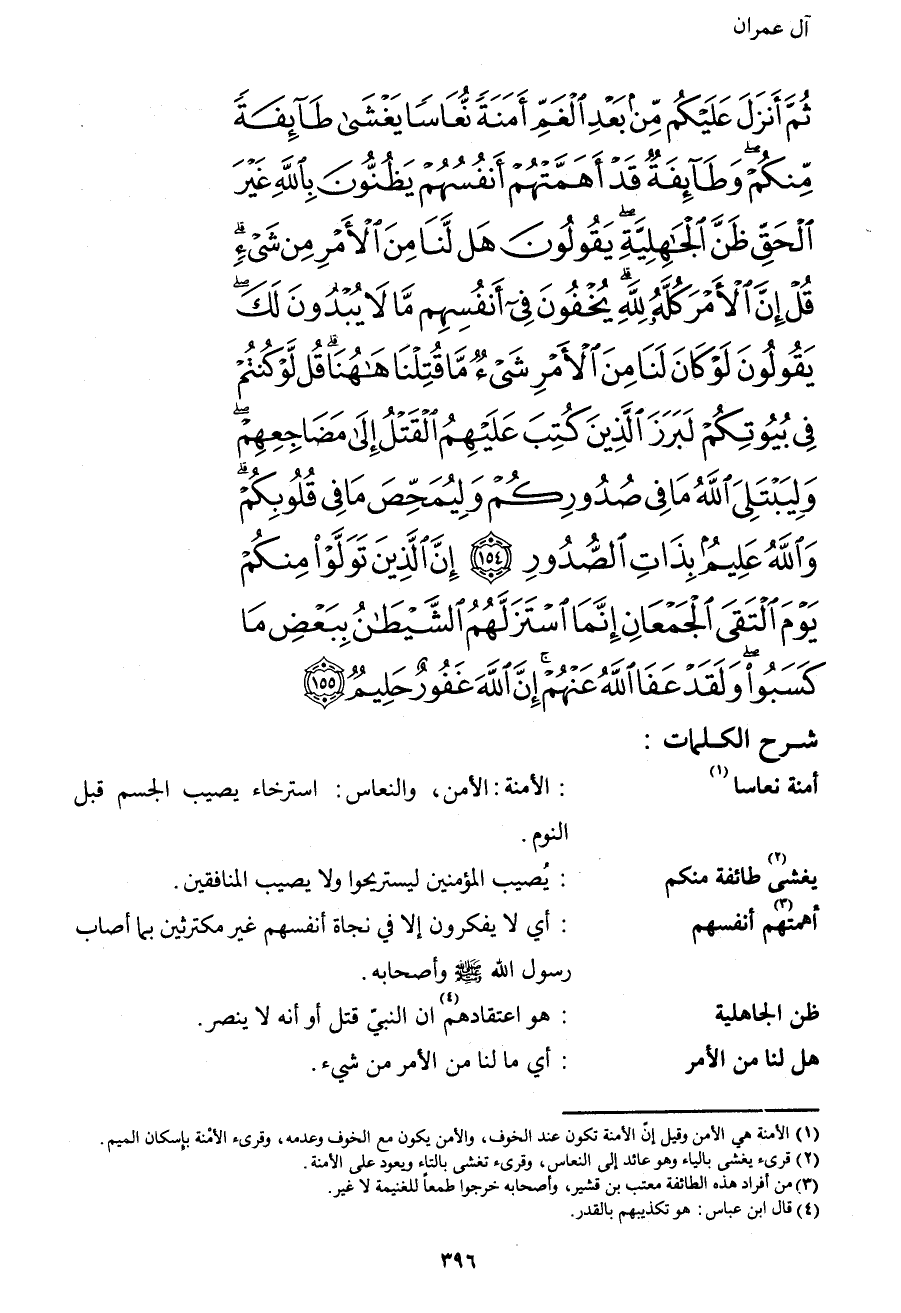 آل عمران
ثُمَّ أَنزَلَ عَلَيْكُم مِّنۢ بَعْدِ ٱلْغَمِّ أَمَنَةً نُّعَاسًا يَغْشَىٰ طَآئِفَةً
مِّنكُمْ ۖ وَطَآئِفَةٌ قَدْ أَهَمَّتْهُمْ أَنفُسُهُمْ يَظُنُّونَ بِٱللَّهِ غَيْرَ
ٱلْحَقِّ ظَنَّ ٱلْجَٰهِلِيَّةِ ۖ يَقُولُونَ هَل لَّنَا مِنَ ٱلْأَمْرِ مِن شَىْءٍ ۗ
قُلْ إِنَّ ٱلْأَمْرَ كُلَّهُۥ لِلَّهِ ۗ يُخْفُونَ فِىٓ أَنفُسِهِم مَّا لَا يُبْدُونَ لَكَ ۖ
يَقُولُونَ لَوْ كَانَ لَنَا مِنَ ٱلْأَمْرِ شَىْءٌ مَّا قُتِلْنَا هَٰهُنَا ۗ قُل لَّوْ كُنتُمْ
فِى بُيُوتِكُمْ لَبَرَزَ ٱلَّذِينَ كُتِبَ عَلَيْهِمُ ٱلْقَتْلُ إِلَىٰ مَضَاجِعِهِمْ ۖ
وَلِيَبْتَلِىَ ٱللَّهُ مَا فِى صُدُورِكُمْ وَلِيُمَحِّصَ مَا فِى قُلُوبِكُمْ ۗ
وَٱللَّهُ عَلِيمٌۢ بِذَاتِ ٱلصُّدُورِ ١٥٤ إِنَّ ٱلَّذِينَ تَوَلَّوْا۟ مِنكُمْ
يَوْمَ ٱلْتَقَى ٱلْجَمْعَانِ إِنَّمَا ٱسْتَزَلَّهُمُ ٱلشَّيْطَٰنُ بِبَعْضِ مَا
كَسَبُوا۟ ۖ وَلَقَدْ عَفَا ٱللَّهُ عَنْهُمْ ۚ إِنَّ ٱللَّهَ غَفُورٌ حَلِيمٌ ١٥٥
شرح الكلمات :
أمنة نعاسا(١) : الأمنة: الأمن، والنعاس: استرخاء يصيب الجسم قبل
النوم.
يغشى(٢) طائفة منكم : يُصيب المؤمنين ليستريحوا ولا يصيب المنافقين.
أهمتهم(٣) أنفسهم : أي لا يفكرون إلا في نجاة أنفسهم غير مكترثين بما أصاب
رسول الله ﷺ وأصحابه.
ظن الجاهلية : هو اعتقادهم(٤) ان النبيّ قتل أو أنه لا ينصر.
هل لنا من الأمر : أي ما لنا من الأمر من شيء.
(١) الأمنة هي الأمن وقيل إنّ الأمنة تكون عند الخوف، والأمن يكون مع الخوف وعدمه، وقرىء الأمْنة بإسكان الميم.
(٢) قرىء يغشى بالياء وهو عائد إلى النعاس، وقرىء تغشى بالتاء ويعود على الأمنة.
(٣) من أفراد هذه الطائفة معتب بن قشير، وأصحابه خرجوا طمعاً للغنيمة لا غير.
(٤) قال ابن عباس: هو تكذيبهم بالقدر.
٣٩٦